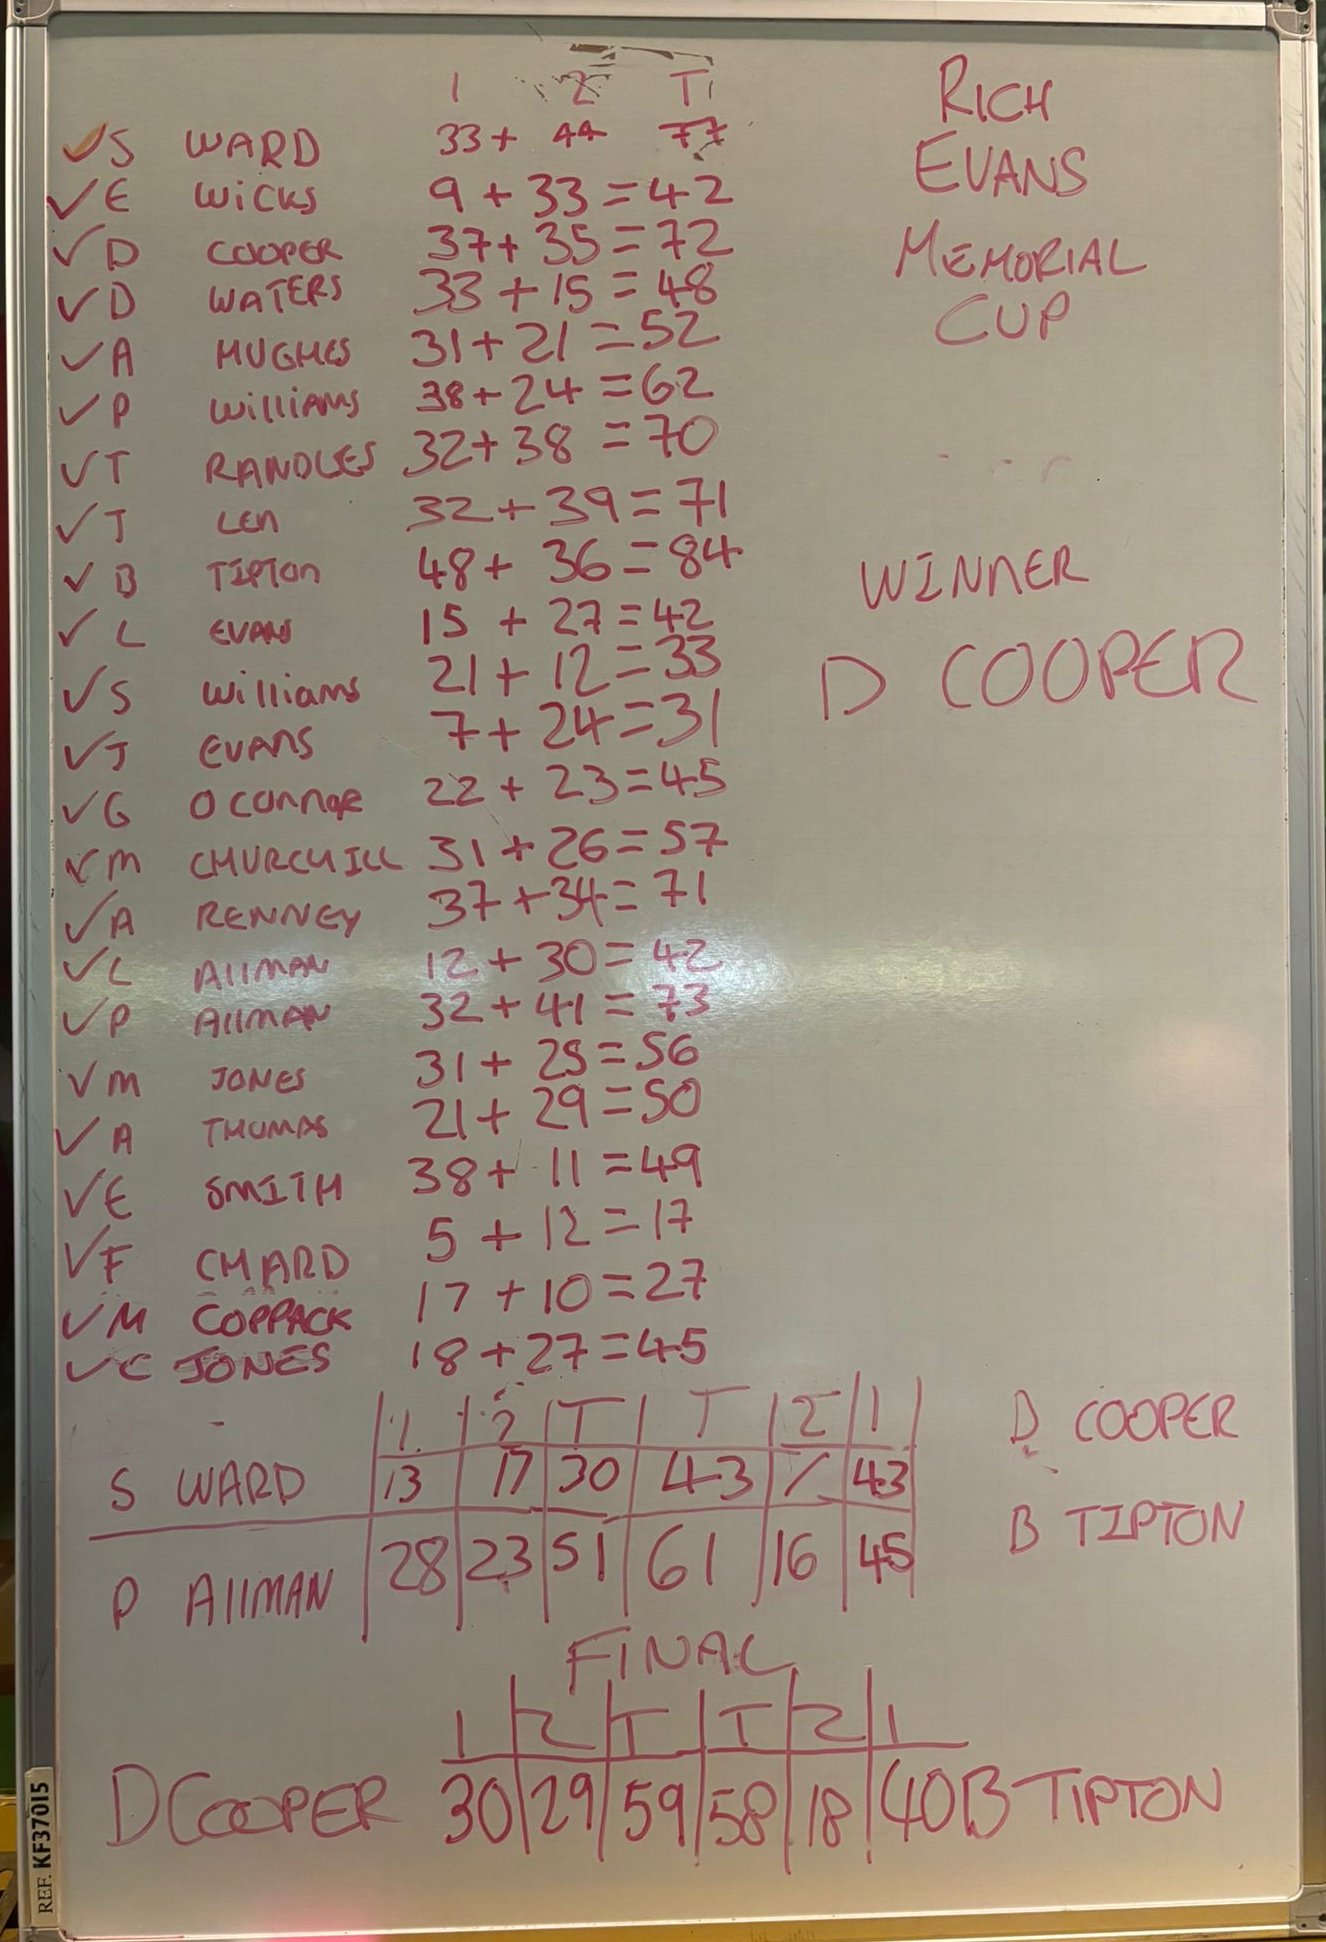 1 2 T
✓ S WARD 33+ 44 77
✓ E WICKS 9 + 33 = 42
✓ D COOPER 37+ 35 = 72
✓ D WATERS 33 + 15 = 48
✓ A HUGHES 31 + 21 = 52
✓ P WilliAMS 38 + 24 = 62
✓ T RANDLES 32+ 38 = 70
✓ J LEA 32 + 39 = 71
✓ B TIPTON 48 + 36 = 84
✓ L EVANS 15 + 27 = 42
✓ S Williams 21 + 12 = 33
✓ J EVANS 7 + 24 = 31
✓ G O CONNOR 22 + 23 = 45
✓ M CHURCHILL 31 + 26 = 57
✓ A RENNEY 37 + 34 = 71
✓ L AllMAN 12 + 30 = 42
✓ P AllMAN 32 + 41 = 73
✓ M JONES 31 + 25 = 56
✓ A THOMAS 21 + 29 = 50
✓ E SMITH 38 + 11 = 49
✓ F CHARD 5 + 12 = 17
✓ M COPPACK 17 + 10 = 27
✓ C JONES 18 + 27 = 45
RICH
EVANS
MEMORIAL
CUP
WINNER
D COOPER
1 2 T T 2 1
S WARD 13 17 30 43 / 43 D COOPER
P AllMAN 28 23 51 61 16 45 B TIPTON
FINAL
1 2 T T 2 1
D COOPER 30 29 59 58 18 40 B TIPTON
REF. KF37015